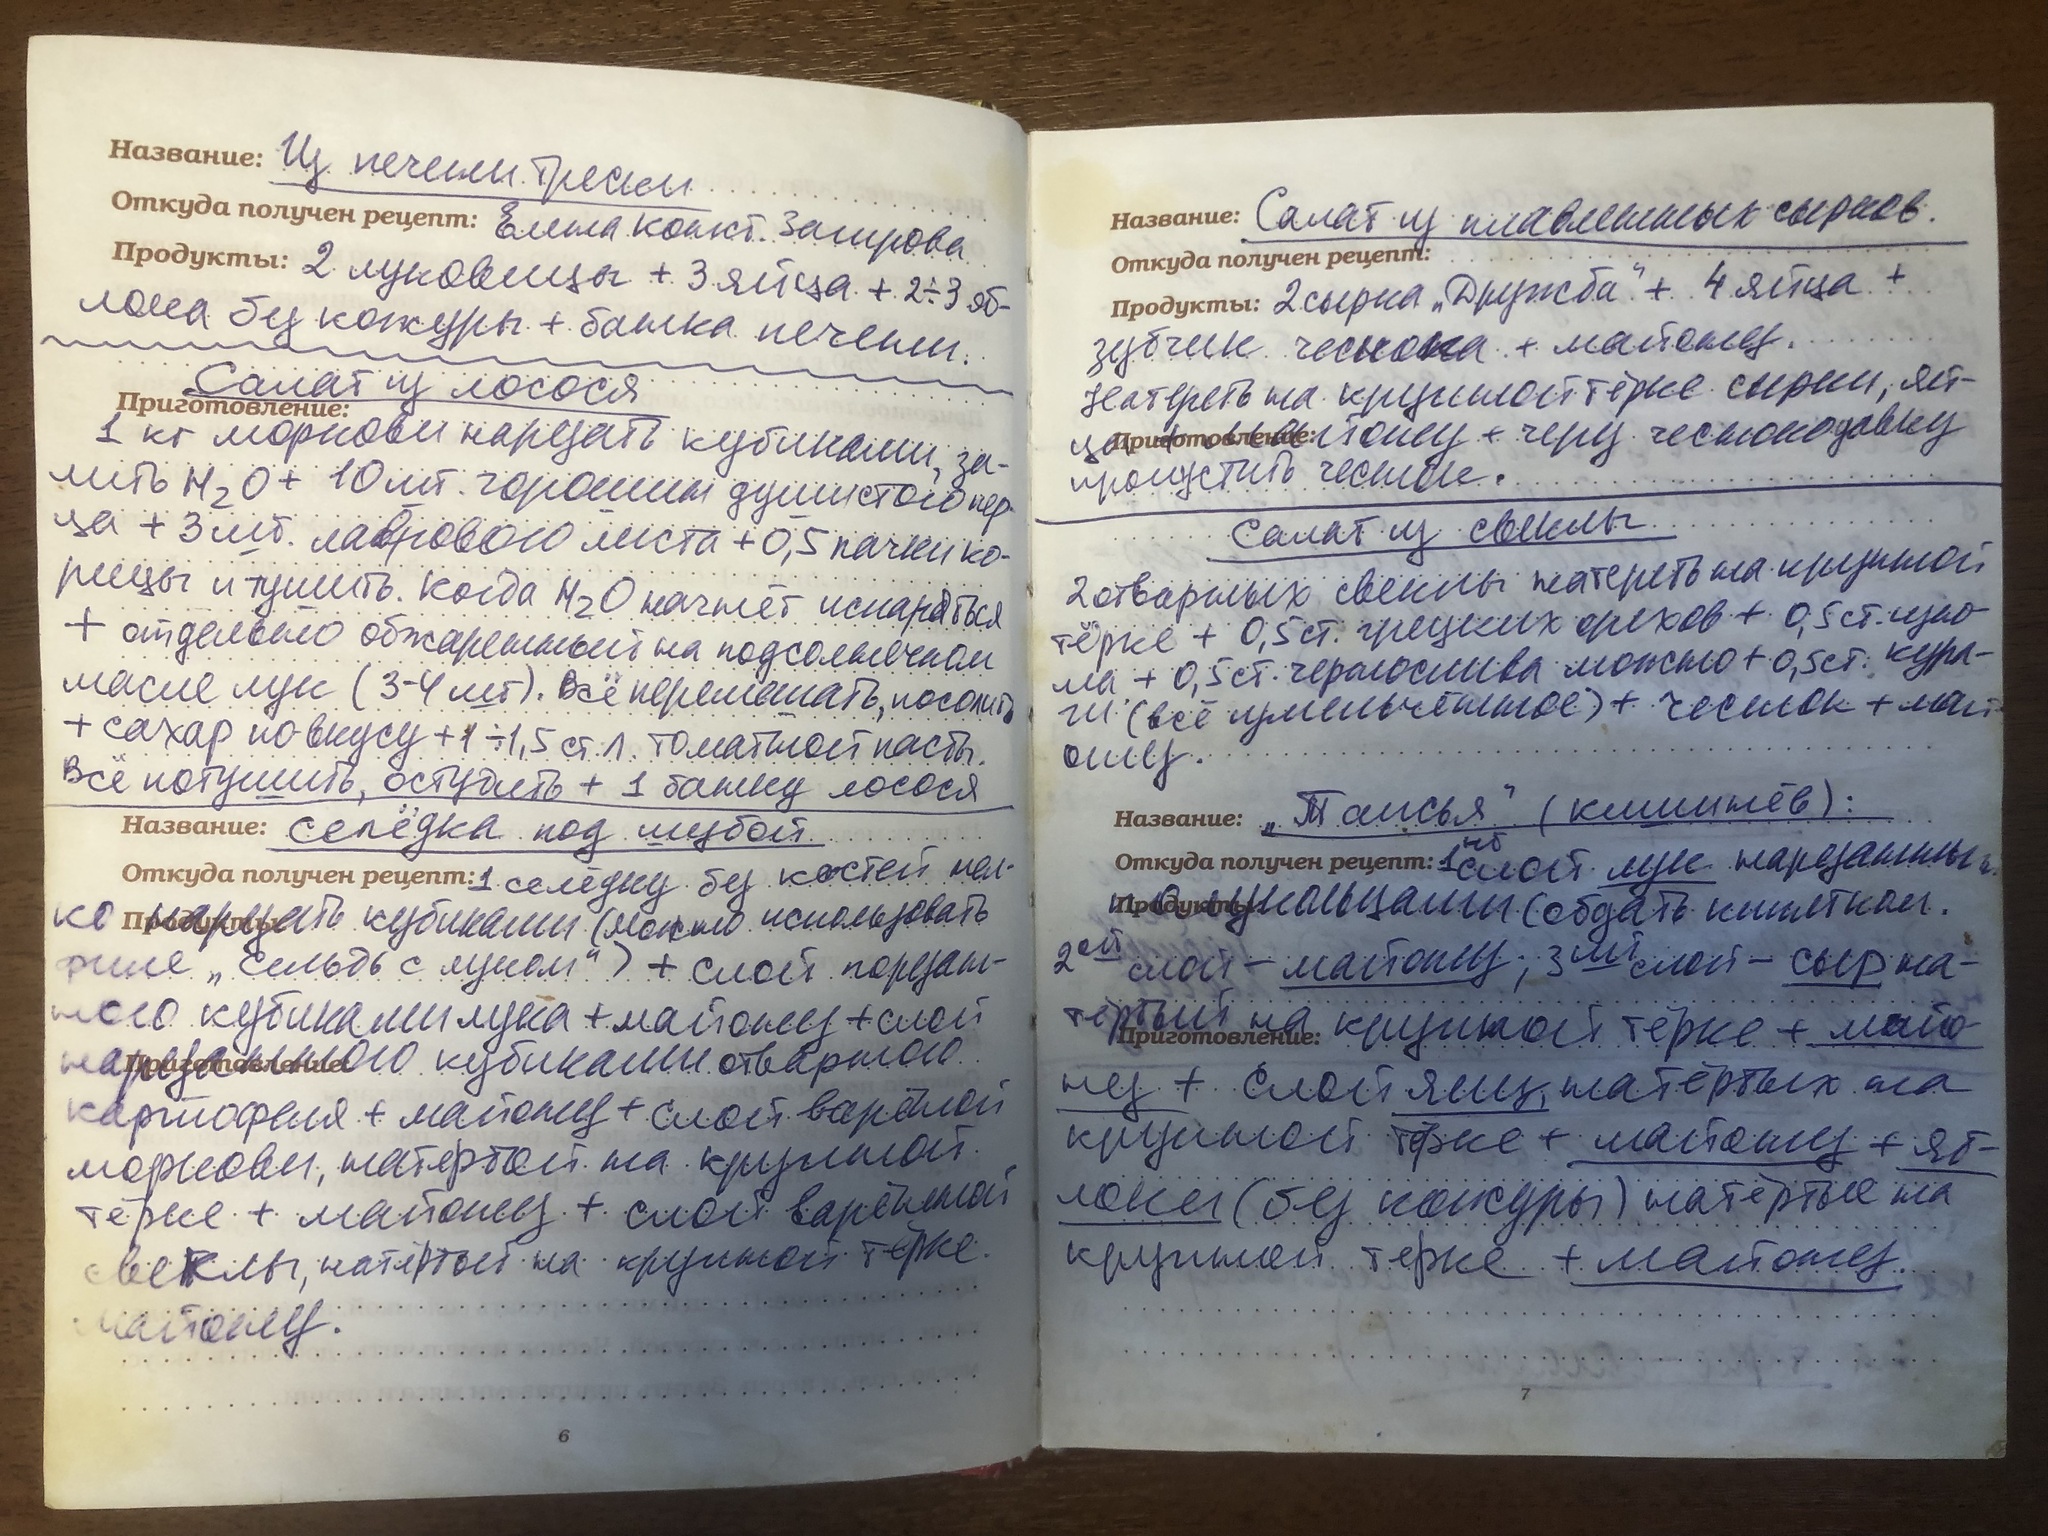 Название: Из печени трески
Откуда получен рецепт: Елена Конст. Загирова
Продукты: 2 луковицы + 3 яйца + 2÷3 яб-
лока без кожуры + банка печени.
Салат из лосося
Приготовление:
1 кг моркови нарезать кубиками, за-
лить H2O + 10 шт. горошин душистого пер-
ца + 3 шт. лаврового листа + 0,5 пачки ко-
рицы и тушить. Когда H2O начнёт испаряться
+ отдельно обжаренный на подсолнечном
масле лук (3-4 шт). Всё перемешать, посолить
+ сахар по вкусу + 1÷1,5 ст.л. томатной пасты.
Всё потушить, остудить + 1 банку лосося
Название: Селёдка под шубой
Откуда получен рецепт: 1 селёдку без костей мел-
Продукты:
ко нарезать кубиками (можно использовать
филе „Сельдь с луком“) + слой порезан-
ного кубиками лука + майонез + слой
Приготовление:
нарезанного кубиками отварного
картофеля + майонез + слой варёной
моркови, натёртой на крупной
тёрке + майонез + слой варённой
свеклы, натёртой на крупной тёрке.
майонез.
6
Название: Салат из плавленных сырков.
Откуда получен рецепт:
Продукты: 2 сырка „Дружба“ + 4 яйца +
зубчик чеснока + майонез.
Натереть на крупной тёрке сырки, яй-
Приготовление:
ца + майонез + через чеснокодавку
пропустить чеснок.
Салат из свеклы
2 отварных свеклы натереть на крупной
тёрке + 0,5 ст. грецких орехов + 0,5 ст. изю-
ма + 0,5 ст. чернослива можно + 0,5 ст. кура-
ги (всё измельчённое) + чеснок + май-
онез.
Название: „Таисья“ (Кишинёв):
Откуда получен рецепт: 1ый слой лук нарезанный
Продукты:
полукольцами (обдать кипятком.
2ой слой – майонез; 3ий слой – сыр на-
тёртый на крупной тёрке + майо-
Приготовление:
нез + слой яиц, натёртых на
крупной тёрке + майонез + яб-
локи (без кожуры) натёртые на
крупной терке + майонез.
7